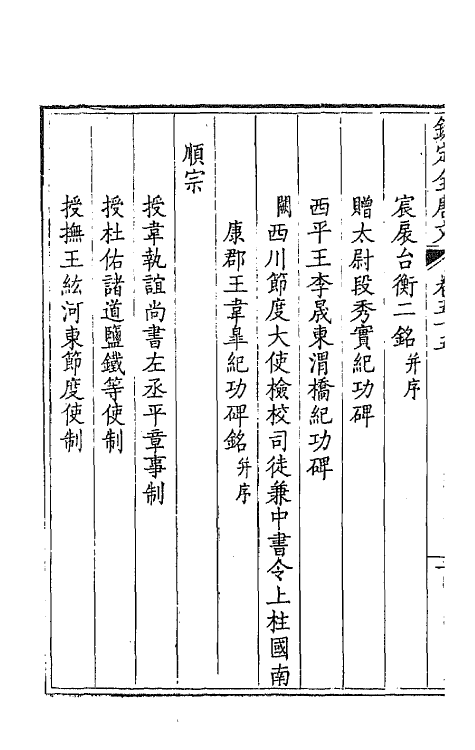 欽定全唐文 卷五十五
宸扆台衡二銘并序
贈太尉段秀實紀功碑
西平王李晟東渭橋紀功碑
闕西川節度大使檢校司徒兼中書令上柱國南
康郡王韋臯紀功碑銘并序
順宗
授韋執誼尚書左丞平章事制
授杜佑諸道鹽鐵等使制
授撫王紘河東節度使制